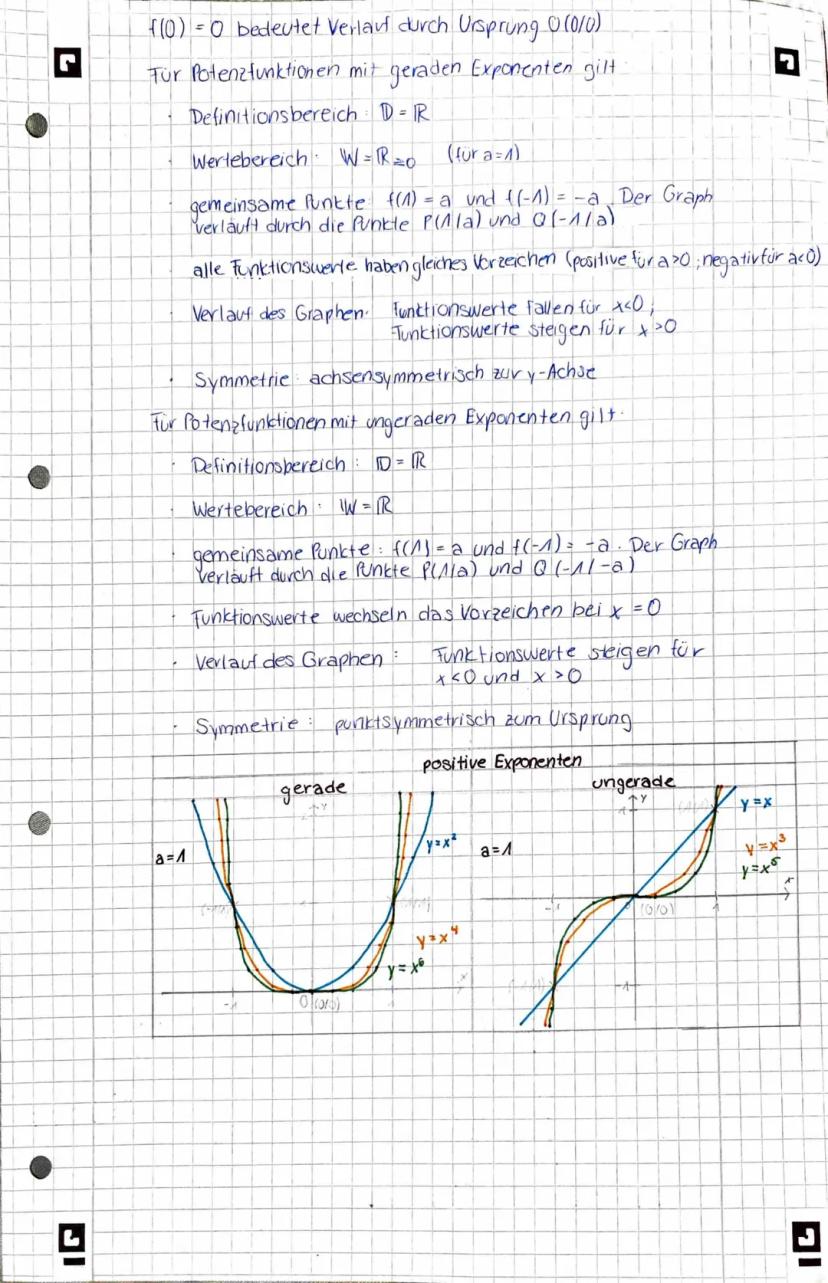 f(0) = 0 bedeutet Verlauf durch Ursprung O(0/0)
Für Potenzfunktionen mit geraden Exponenten gilt
· Definitionsbereich: D = ℝ
· Wertebereich: W = ℝ≥0 (für a=1)
· gemeinsame Punkte: f(1) = a und f(-1) = -a. Der Graph
verläuft durch die Punkte P(1/a) und Q(-1/a)
· alle Funktionswerte haben gleiches Vorzeichen (positive für a>0; negativ für a<0)
· Verlauf des Graphen: Funktionswerte fallen für x<0;
Funktionswerte steigen für x>0
· Symmetrie: achsensymmetrisch zur y-Achse
Für Potenzfunktionen mit ungeraden Exponenten gilt:
· Definitionsbereich: D = ℝ
· Wertebereich: W = ℝ
· gemeinsame Punkte: f(1) = a und f(-1) = -a. Der Graph
verläuft durch die Punkte P(1/a) und Q(-1/-a)
· Funktionswerte wechseln das Vorzeichen bei x = 0
· Verlauf des Graphen: Funktionswerte steigen für
x<0 und x>0
· Symmetrie: punktsymmetrisch zum Ursprung
positive Exponenten
gerade
ungerade
a=1
y=x²
y=x⁴
y=x⁶
-1
0 (0/0)
a=1
y
1
y=x
y=x³
y=x⁵
x
-1
(0/0)
1
-1